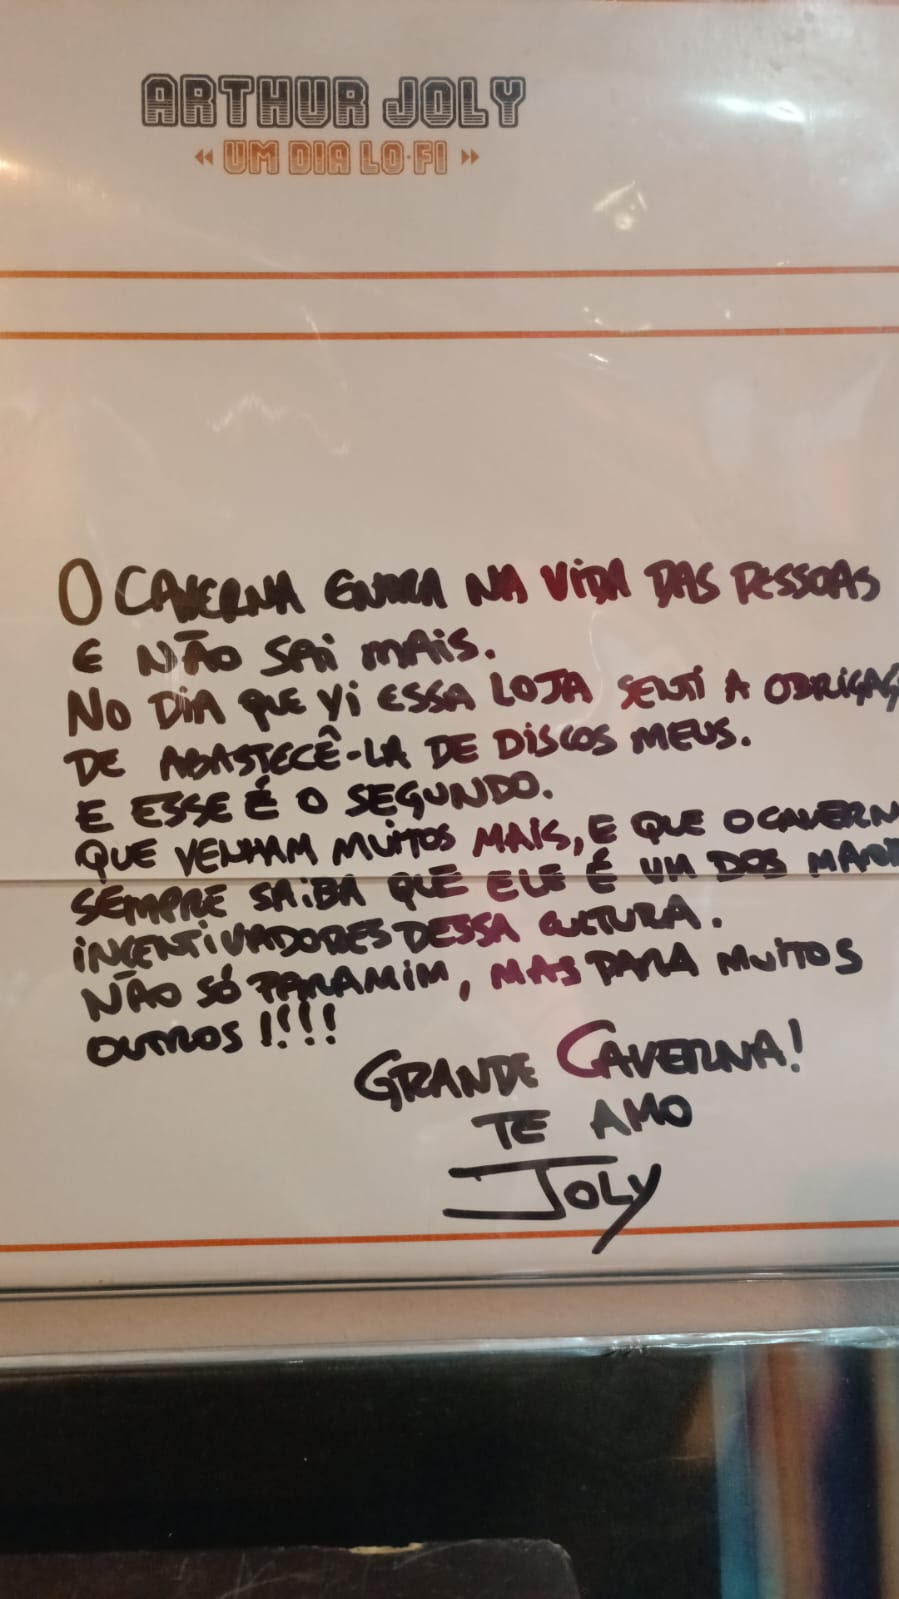 ARTHUR JOLY
« UM DIA LO-FI »
O CAVERNA ENTRA NA VIDA DAS PESSOAS
E NÃO SAI MAIS.
NO DIA QUE VI ESSA LOJA SENTI A OBRIGAÇ
DE ABASTECÊ-LA DE DISCOS MEUS.
E ESSE É O SEGUNDO.
QUE VENHAM MUITOS MAIS, E QUE O CAVERN
SEMPRE SAIBA QUE ELE É UM DOS
INCENTIVADORES DESSA CULTURA.
NÃO SÓ PARA MIM, MAS PARA MUITOS
OUTROS!!!!
GRANDE CAVERNA!
TE AMO
JOLY